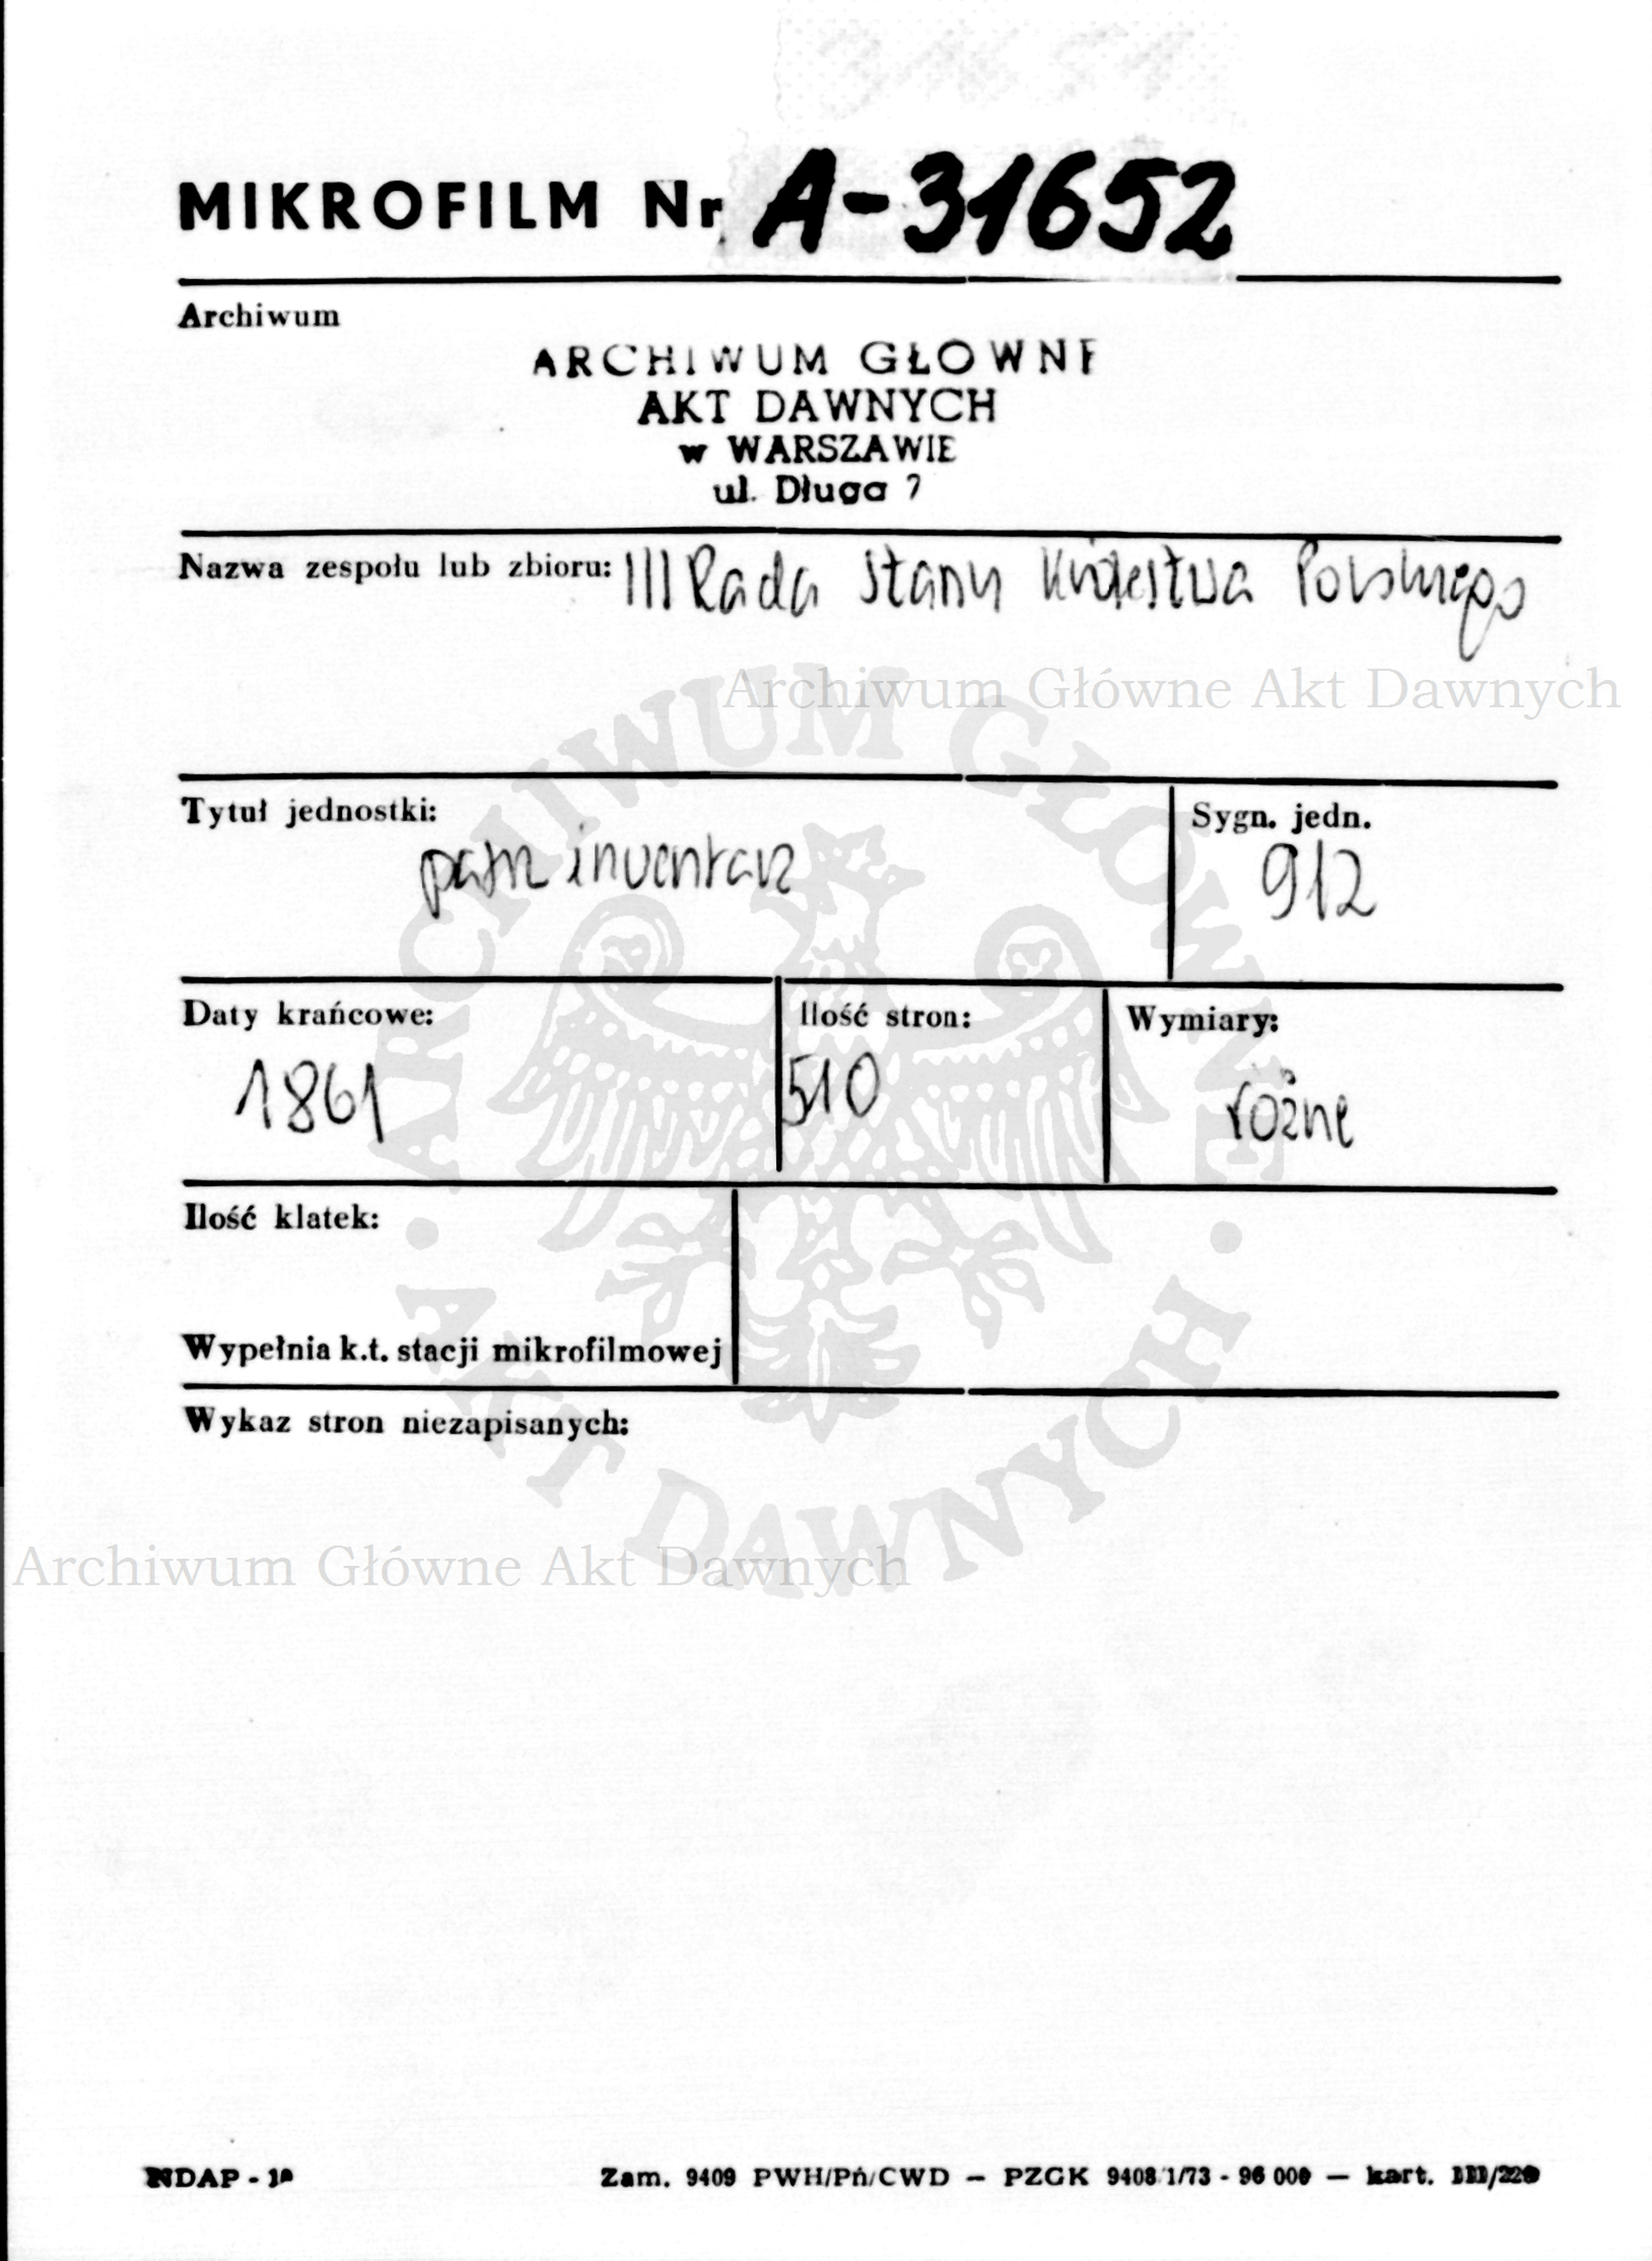 MIKROFILM Nr A-31652
Archiwum
ARCHIWUM GŁOWNE
AKT DAWNYCH
w WARSZAWIE
ul. Długa 7
Nazwa zespołu lub zbioru: III Rada Stanu Królestwa Polskiego
Archiwum Główne Akt Dawnych
Tytuł jednostki:
patrz inwentarz
Sygn. jedn.
912
Daty krańcowe:
1861
Ilość stron:
510
Wymiary:
różne
Ilość klatek:
Wypełnia k.t. stacji mikrofilmowej
Wykaz stron niezapisanych:
Archiwum Główne Akt Dawnych
ARCHIWUM GŁÓWNE
AKT DAWNYCH
NDAP -
Zam. 9409 PWH/Pń/CWD — PZGK 9408 1/73 - 96 000 — kart.